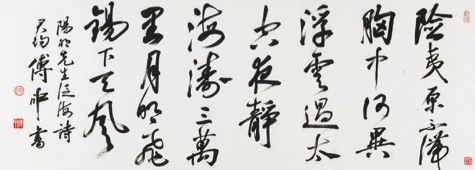 險夷原不滯
胸中何異
浮雲過太
空夜靜
海濤三萬
里月明飛
錫下天風
陽明先生泛海詩
君約傅申書